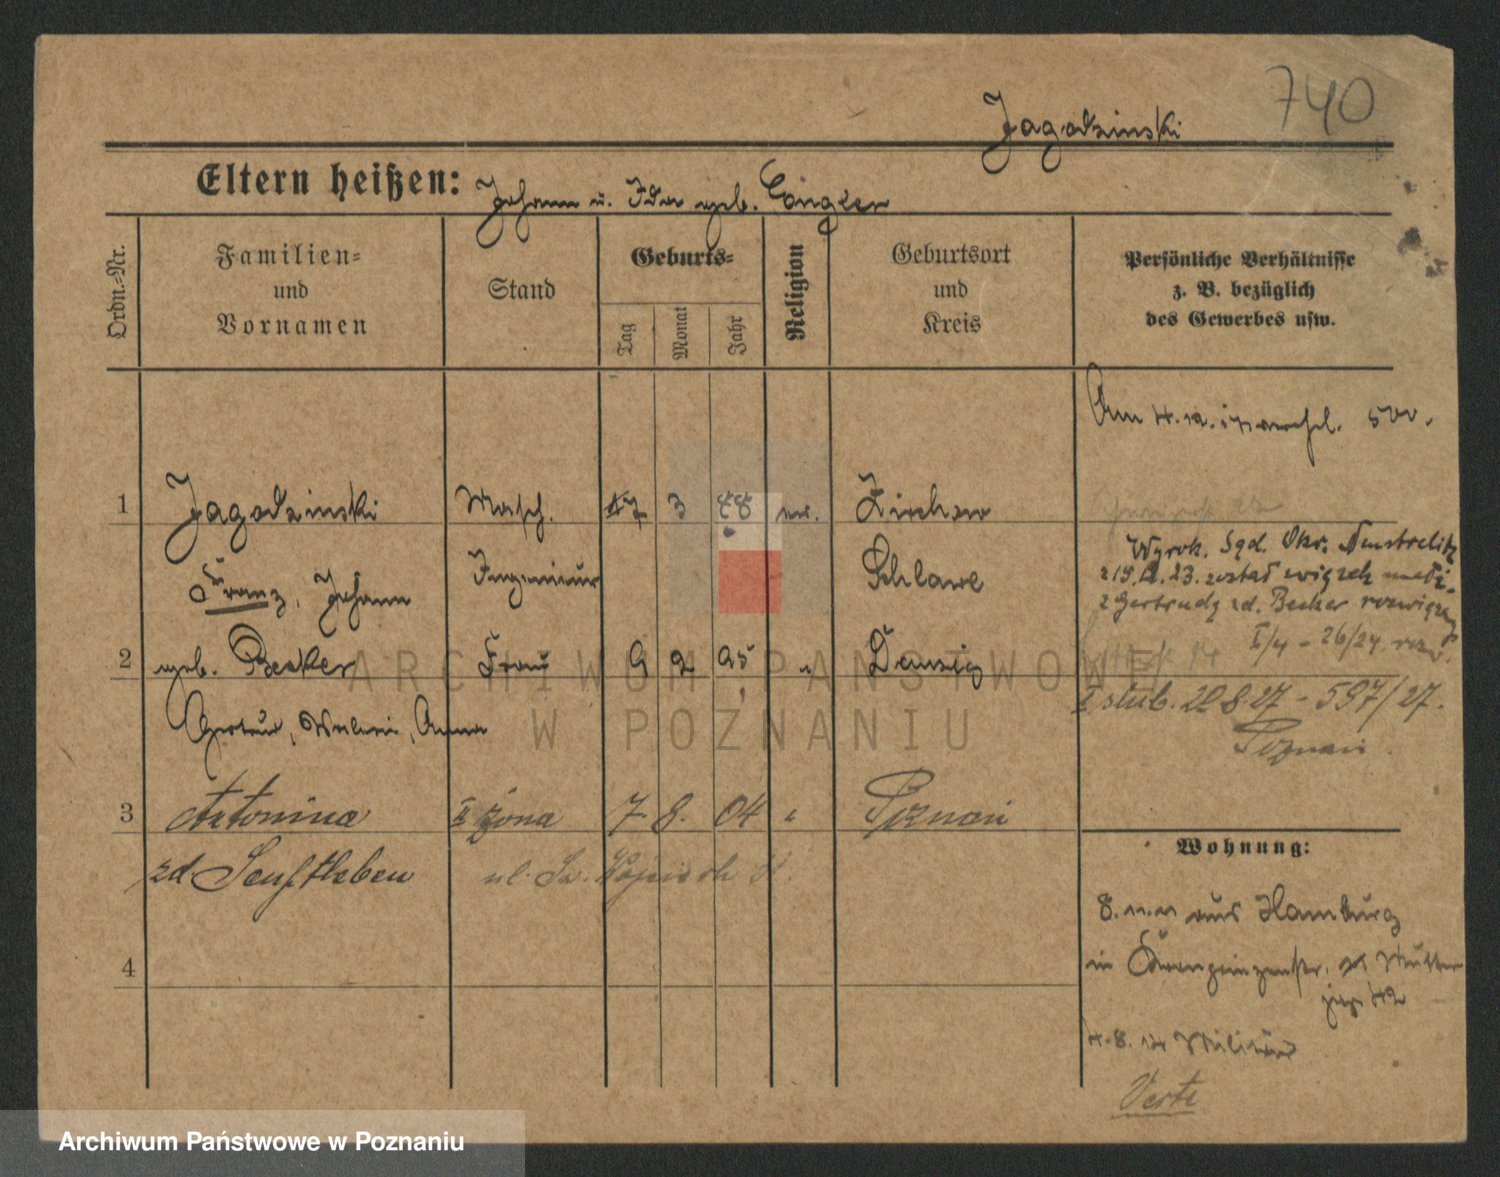 740
Jagodzinski
Eltern heißen: Johann u. Ida geb. Engler
Ordn.-Nr.
Familien-
und
Vornamen
Stand
Geburts-
Tag
Monat
Jahr
Religion
Geburtsort
und
Kreis
Persönliche Verhältnisse
z. B. bezüglich
des Gewerbes usw.
Am 4.12.
1 Jagodzinski Masch. 17 3 88 ev. Zirchow
Franz, Johann Ingenieur Schlawe
Wyrok. Sąd. Okr. Neustrelitz
został związek małż.
z Gertrudą zd. Becker
I/4 - 26/24.
2 geb. Becker Frau 9 2 95 " Danzig
Gertrud, Anna
II ślub. 20.8.27 - 597/27.
Poznań.
3 Antonina II żona 7. 8. 04 " Poznań
zd Senftleben ul. Św.
4
Wohnung:
8.11.11 aus Hamburg
in Kronprinzenstr.
Militär
Verte
ARCHIWUM PAŃSTWOWE
W POZNANIU
Archiwum Państwowe w Poznaniu